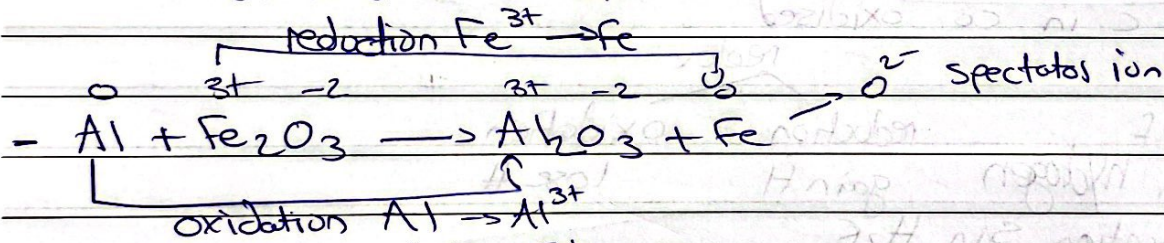 reduction Fe³⁺ → Fe
0 3+ -2 3+ -2 0 O²⁻ spectatos ion
- Al + Fe₂O₃ → Al₂O₃ + Fe
oxidation Al → Al³⁺